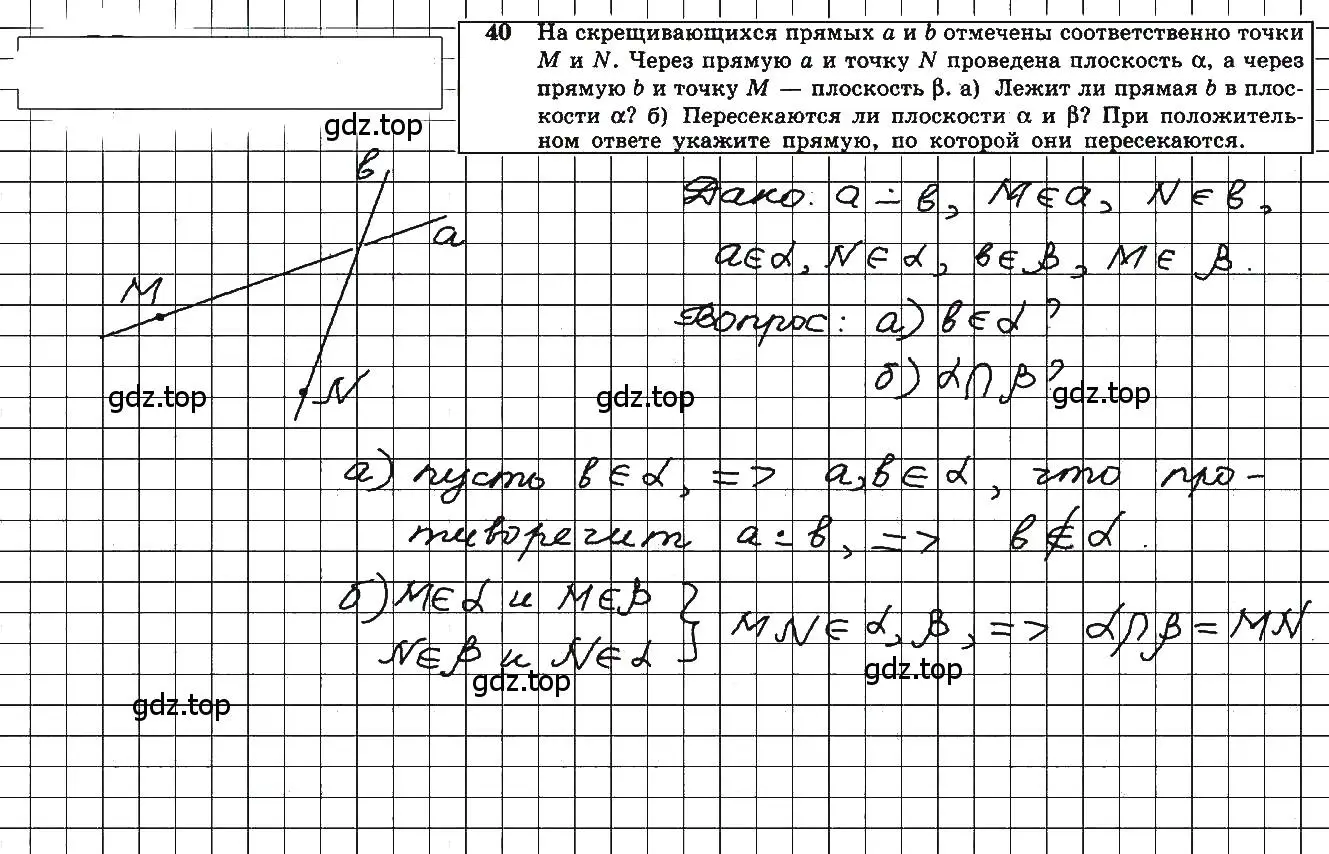 40 На скрещивающихся прямых a и b отмечены соответственно точки
M и N. Через прямую a и точку N проведена плоскость α, а через
прямую b и точку M — плоскость β. а) Лежит ли прямая b в плос-
кости α? б) Пересекаются ли плоскости α и β? При положитель-
ном ответе укажите прямую, по которой они пересекаются.
gdz.top
b
a
M
N
Дано: a ∸ b, M∈a, N∈b,
a∈α, N∈α, b∈β, M∈β.
Вопрос: а) b∈α?
б) α∩β?
gdz.top
gdz.top
gdz.top
а) пусть b∈α, => a,b∈α, что про-
тиворечит a ∸ b, => b∉α.
б) M∈α и M∈β
N∈β и N∈α } MN∈α,β, => α∩β=MN
gdz.top
gdz.top
gdz.top